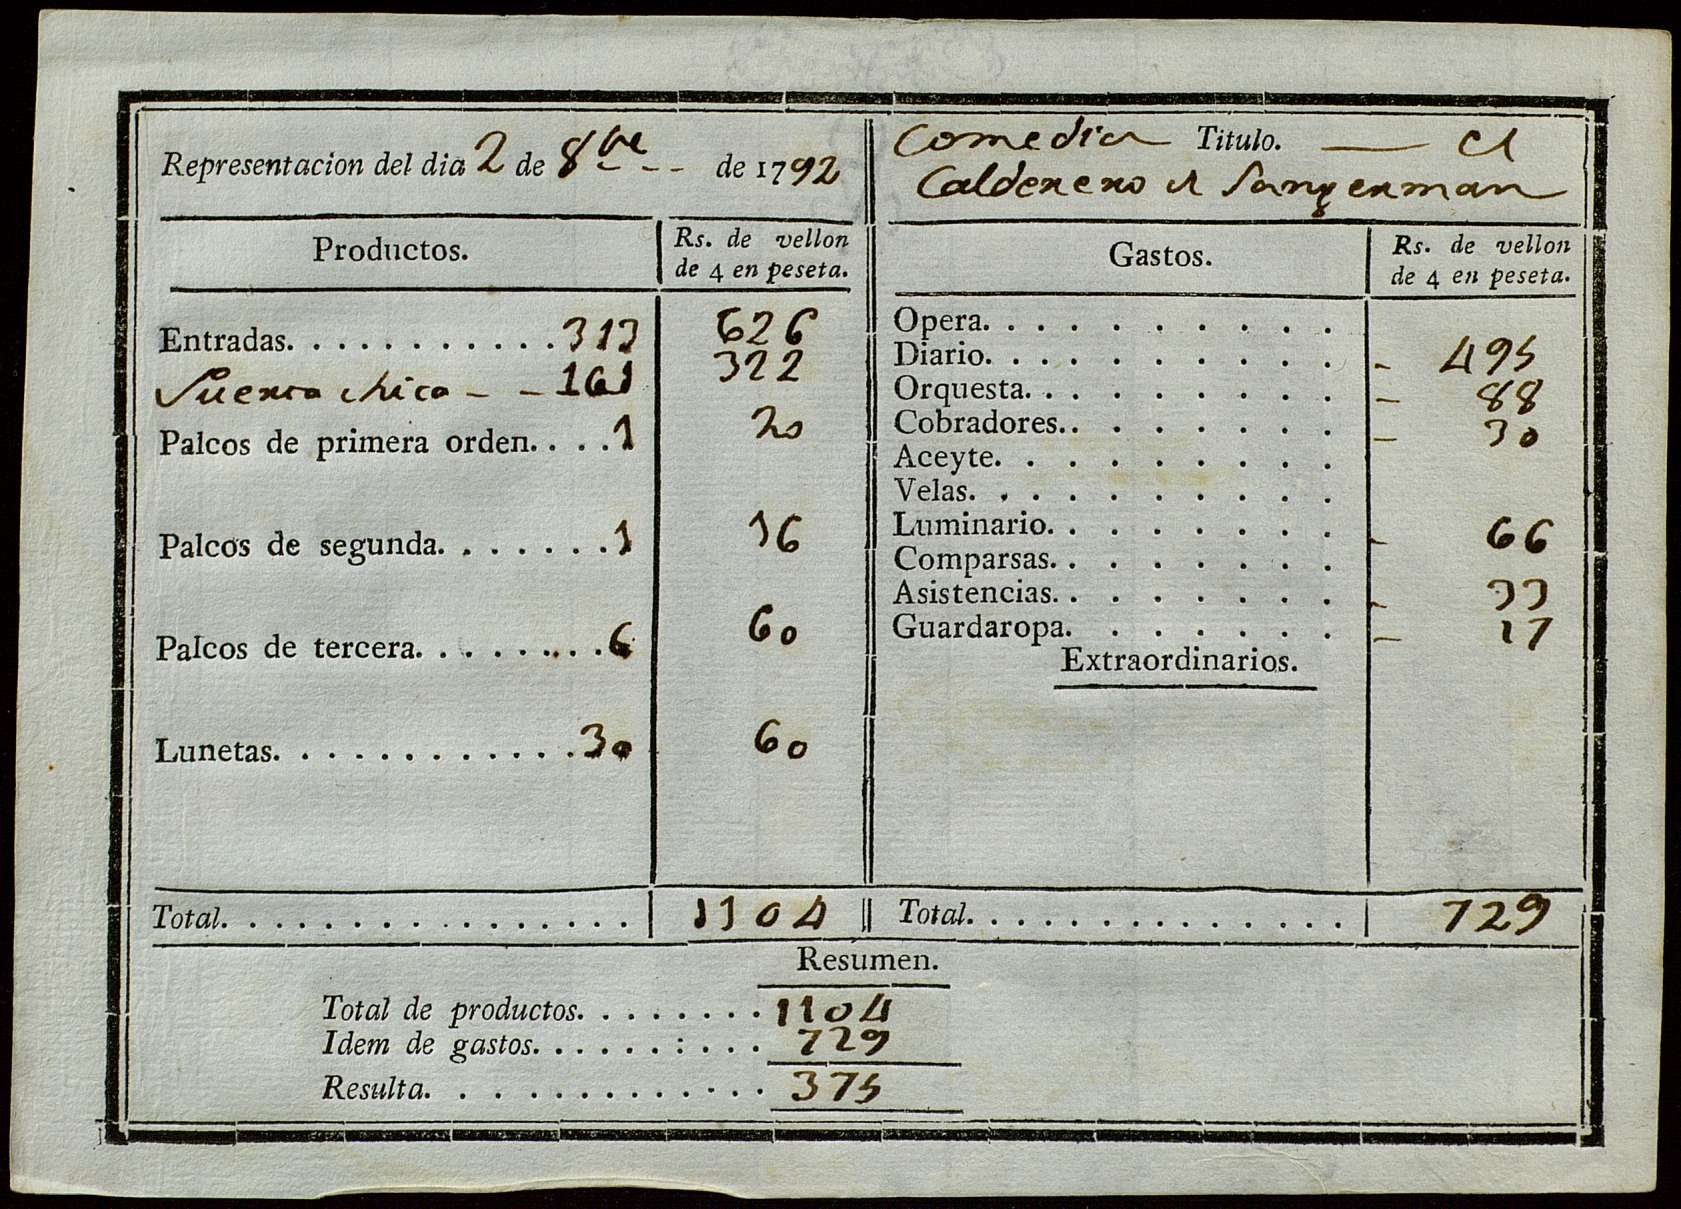 Representacion del dia 2 de 8bre de 1792
Comedia Titulo. el
Calderero d Sangerman
Productos.
Rs. de vellon
de 4 en peseta.
Entradas. . . . . . . . . . . 313 626
Puerta chica 161 322
Palcos de primera orden. . . . 1 20
Palcos de segunda. . . . . . . 1 16
Palcos de tercera. . . . . . . . 6 60
Lunetas. . . . . . . . . . . . 30 60
Total. . . . . . . . . . . . . . . 1104
Gastos.
Rs. de vellon
de 4 en peseta.
Opera. . . . . . . . . .
Diario. . . . . . . . . . 495
Orquesta. . . . . . . . . 88
Cobradores. . . . . . . . 30
Aceyte. . . . . . . . .
Velas. . . . . . . . . .
Luminario. . . . . . . . 66
Comparsas. . . . . . . .
Asistencias. . . . . . . . 33
Guardaropa. . . . . . . 17
Extraordinarios.
Total. . . . . . . . . . . . . . 729
Resumen.
Total de productos. . . . . . . . 1104
Idem de gastos. . . . . . : . . . 729
Resulta. . . . . . . . . . . . . 375